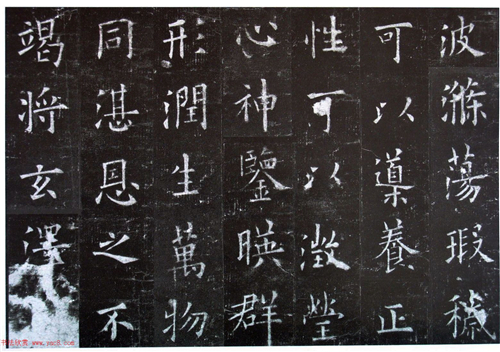 波滌蕩瑕穢
可以導養正
性可以澂瑩
心神鑒暎群
形潤生萬物
同湛恩之不
竭將玄澤
书法欣赏 www.yac8.com